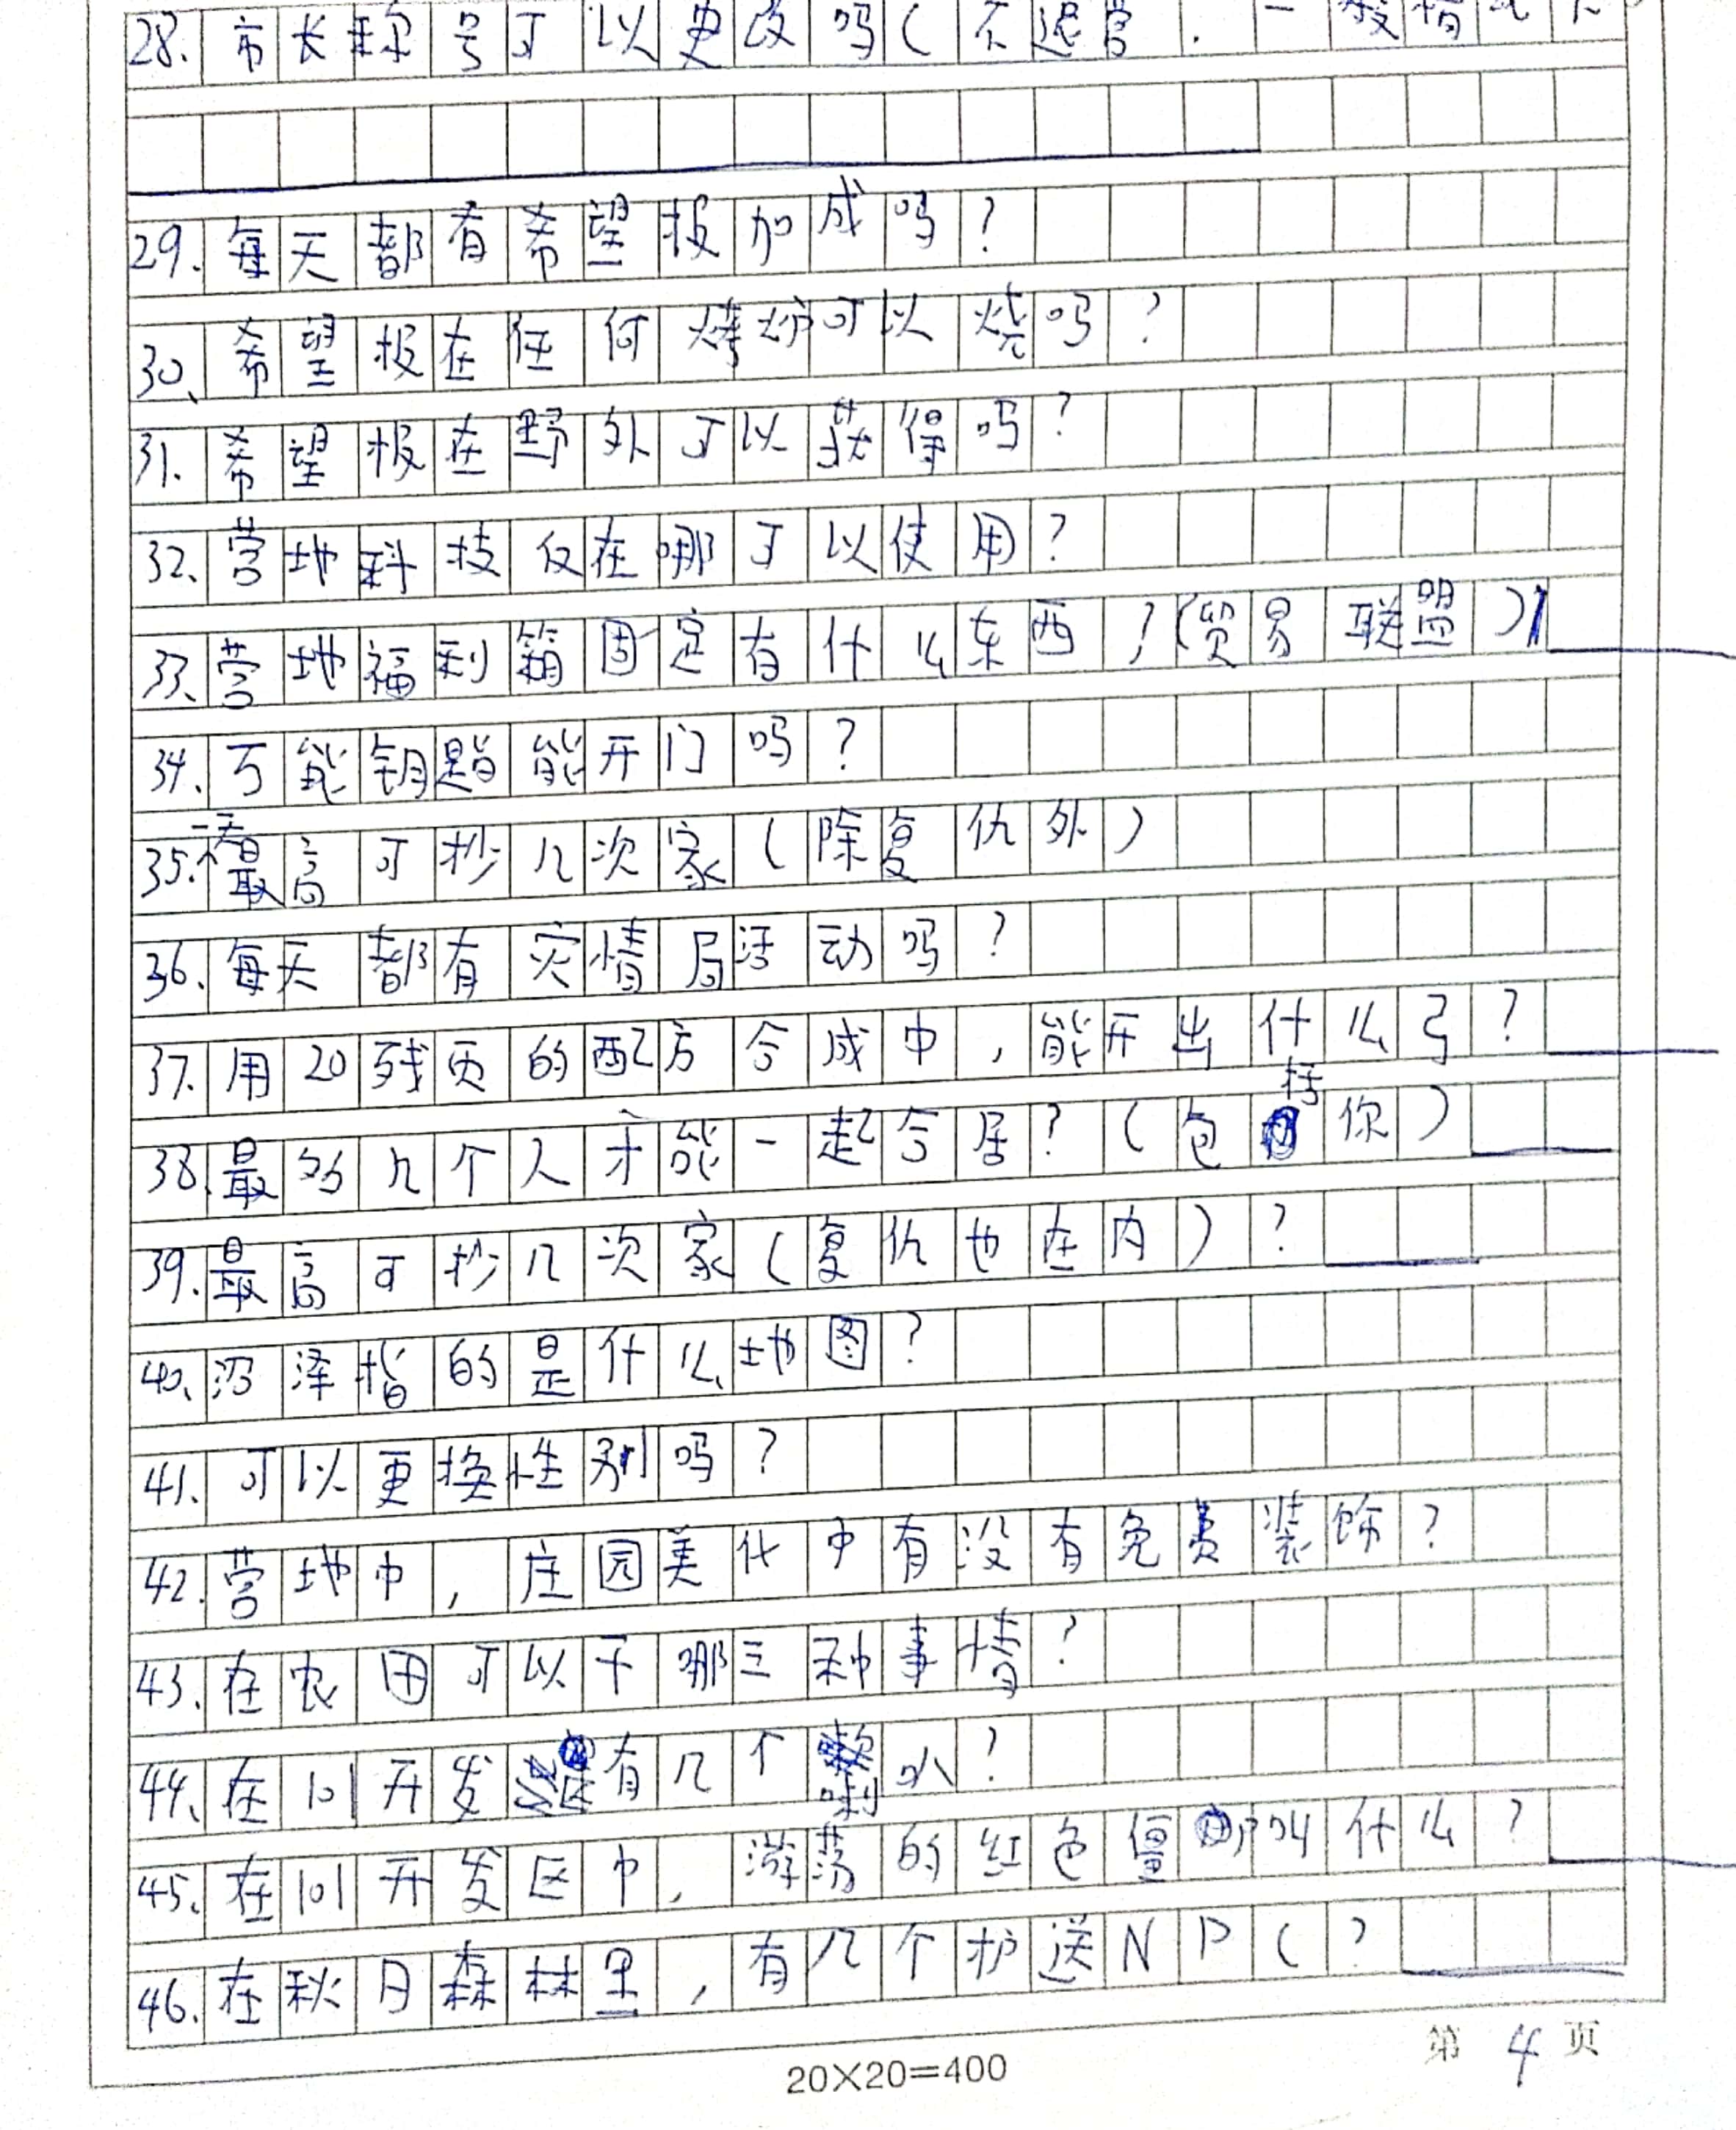 28.市长称号可以更改吗(不退营.一般情况下
29.每天都有希望报加成吗?
30、希望报在任何烤炉可以烧吗?
31.希望报在野外可以获得吗?
32、营地科技仅在哪可以使用?
33、营地福利箱固定有什么东西?(贸易联盟)
34、万能钥匙能开门吗?
35.一天最高可抄几次家(除复仇外)
36、每天都有灾情局活动吗?
37.用20残页的配方合成中,能开出什么弓?
38.最多几个人才能一起合居?(包括你)
39.最高可抄几次家(复仇也在内)?
40、沼泽指的是什么地图?
41、可以更换性别吗?
42.营地中,庄园美化中有没有免费装饰?
43、在农田可以干哪三种事情?
44、在101开发区有几个喇叭?
45、在101开发区中,游荡的红色僵尸叫什么?
46.在秋日森林里,有几个护送NP(?
20×20=400
第4页